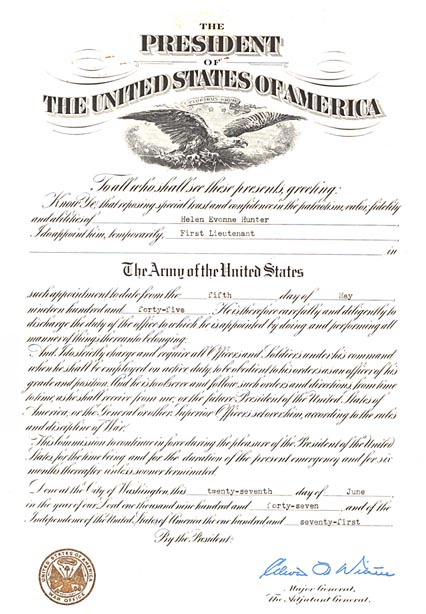 THE
PRESIDENT
OF
THE UNITED STATES OF AMERICA
To all who shall see these presents, greeting:
Know Ye, that reposing special trust and confidence in the patriotism, valor, fidelity
and abilities of Helen Evonne Hunter
I do appoint him, temporarily, First Lieutenant
in
The Army of the United States
such appointment to date from the fifth day of May
nineteen hundred and forty-five He is therefore carefully and diligently to
discharge the duty of the office to which he is appointed by doing and performing all
manner of things thereunto belonging.
And I do strictly charge and require all Officers and Soldiers under his command
when he shall be employed on active duty to be obedient to his orders as an officer of his
grade and position. And he is to observe and follow such orders and directions, from time
to time, as he shall receive from me, or the future President of the United States of
America, or the General or other Superior Officers set over him, according to the rules
and discipline of War.
This Commission to continue in force during the pleasure of the President of the United
States for the time being and for the duration of the present emergency and for six
months thereafter unless sooner terminated.
Done at the City of Washington, this twenty-seventh day of June
in the year of our Lord one thousand nine hundred and forty-seven and of the
Independence of the United States of America the one hundred and seventy-first
By the President:
UNITED STATES OF AMERICA
WAR OFFICE
Major General,
The Adjutant General.